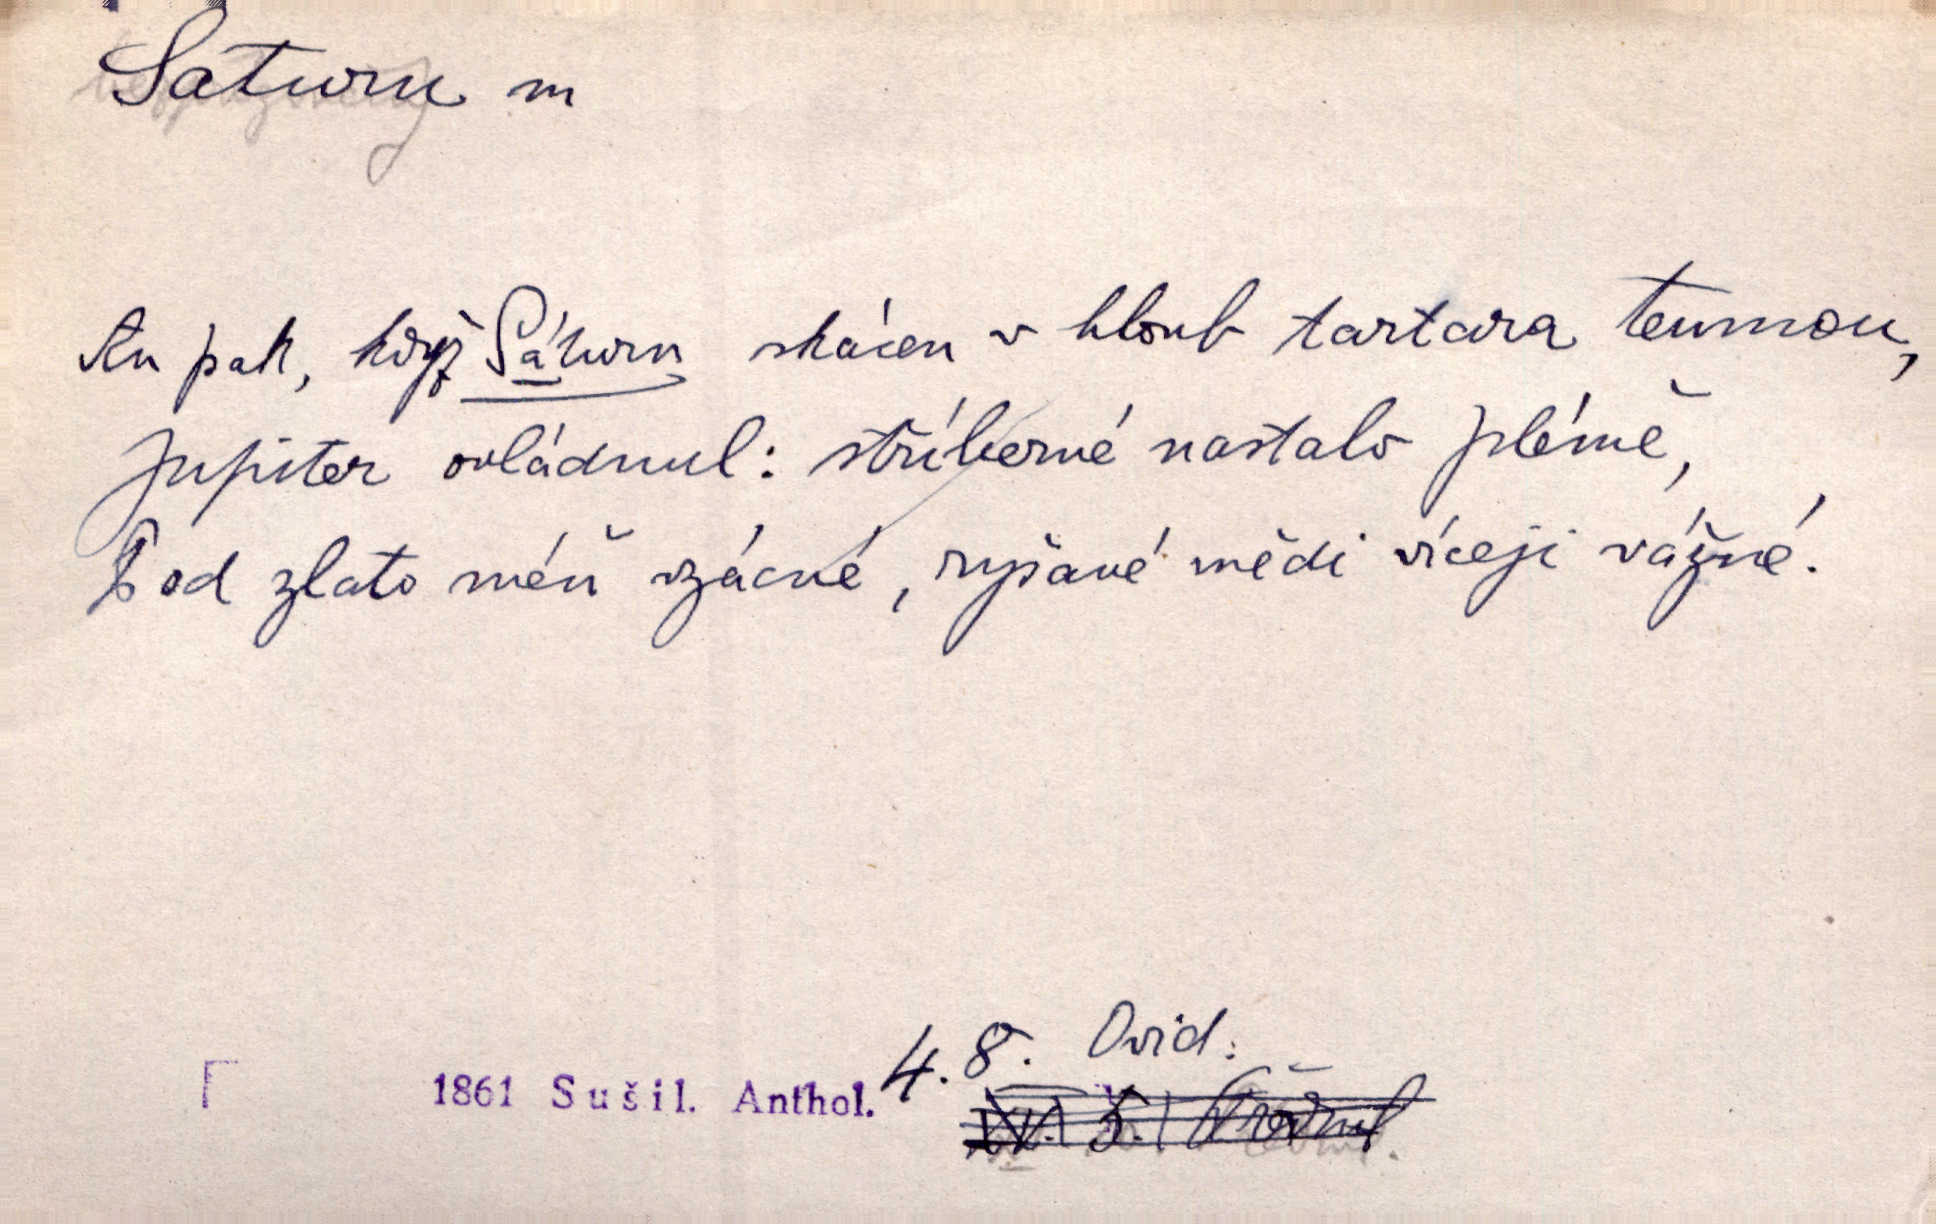 Saturn m
An pak, když Sáturn skácen v hloub tartara temnou,
Jupiter ovládnul: stříberné nastalo plémě,
Pod zlato méň vzácné, ryšavé mědi víceji vážné.
4. 8. Ovid.
1861 Sušil. Anthol.